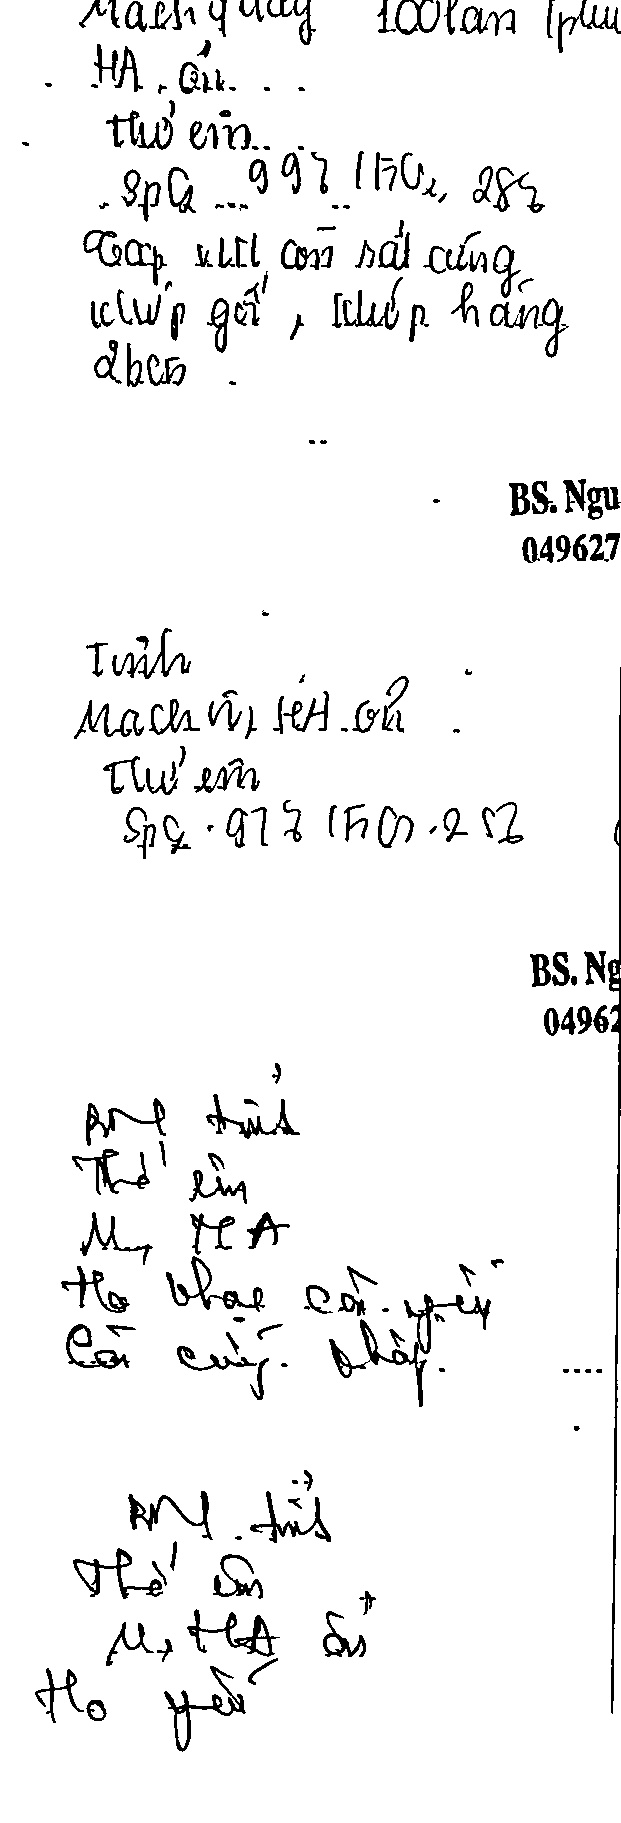 Mạch quay 100 lần/phú
HA ổn
Thở êm
SpO2 99% / FiO2 28%
Gấp duỗi còn rất cứng
khớp gối, khớp háng
2 bên
BS. Ngu
049627
Tỉnh
Mạch rõ, HA ổn
Thở êm
SpO2 97% / FiO2 25%
BS. Ng
04962
BN tỉnh
Thở êm
M, HA
Ho khạc còn yếu
Còn cứng khớp
BN tỉnh
Thở êm
M, HA ổn
Ho yếu